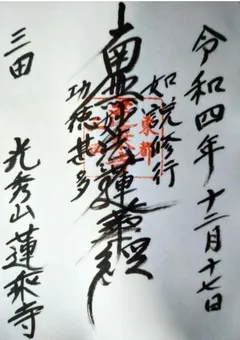 令和四年十二月十七日
如説修行
南無妙法蓮華経
功徳甚多
三田 光秀山 蓮乘寺